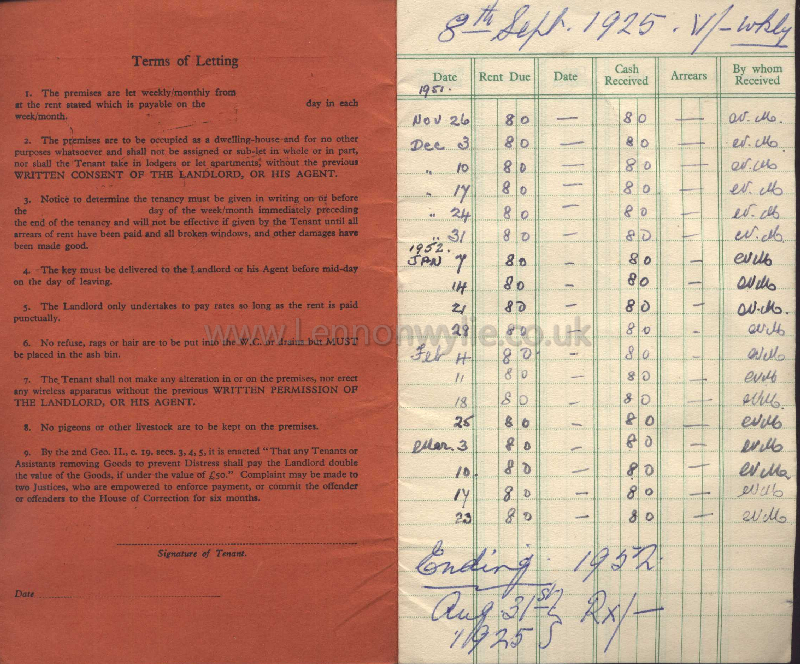 Terms of Letting
1. The premises are let weekly/monthly from
at the rent stated which is payable on the day in each
week/month.
2. The premises are to be occupied as a dwelling-house and for no other
purposes whatsoever and shall not be assigned or sub-let in whole or in part,
nor shall the Tenant take in lodgers or let apartments, without the previous
WRITTEN CONSENT OF THE LANDLORD, OR HIS AGENT.
3. Notice to determine the tenancy must be given in writing on or before
the day of the week/month immediately preceding
the end of the tenancy and will not be effective if given by the Tenant until all
arrears of rent have been paid and all broken windows, and other damages have
been made good.
4. The key must be delivered to the Landlord or his Agent before mid-day
on the day of leaving.
5. The Landlord only undertakes to pay rates so long as the rent is paid
punctually.
6. No refuse, rags or hair are to be put into the W.C. or drains but MUST
be placed in the ash bin.
7. The Tenant shall not make any alteration in or on the premises, nor erect
any wireless apparatus without the previous WRITTEN PERMISSION OF
THE LANDLORD, OR HIS AGENT.
8. No pigeons or other livestock are to be kept on the premises.
9. By the 2nd Geo. II., c. 19, secs. 3, 4, 5, it is enacted "That any Tenants or
Assistants removing Goods to prevent Distress shall pay the Landlord double
the value of the Goods, if under the value of £50." Complaint may be made to
two Justices, who are empowered to enforce payment, or commit the offender
or offenders to the House of Correction for six months.
Signature of Tenant.
Date
www.Lennonwylie.co.uk
8th Sept. 1925. V/- wkly
Date Rent Due Date Cash Received Arrears By whom Received
1951.
Nov 26 80 — 80 — W.M.
Dec 3 80 — 80 — W.M.
" 10 80 — 80 — W.M.
" 17 80 — 80 — W.M.
" 24 80 — 80 — W.M.
" 31 80 — 80 — W.M.
1952.
JAN 7 80 — 80 — WM
14 80 — 80 — WM
21 80 — 80 — WM.
28 80 — 80 — WM
Feb 4 80 — 80 — WM
11 80 — 80 — WM
18 80 — 80 — WM.
25 80 — 80 — WM
Mar. 3 80 — 80 — WM
10. 80 — 80 — WM
17 80 — 80 — WM
23 80 — 80 — WM
Ending 1952.
Aug. 31st Rx/-
1925